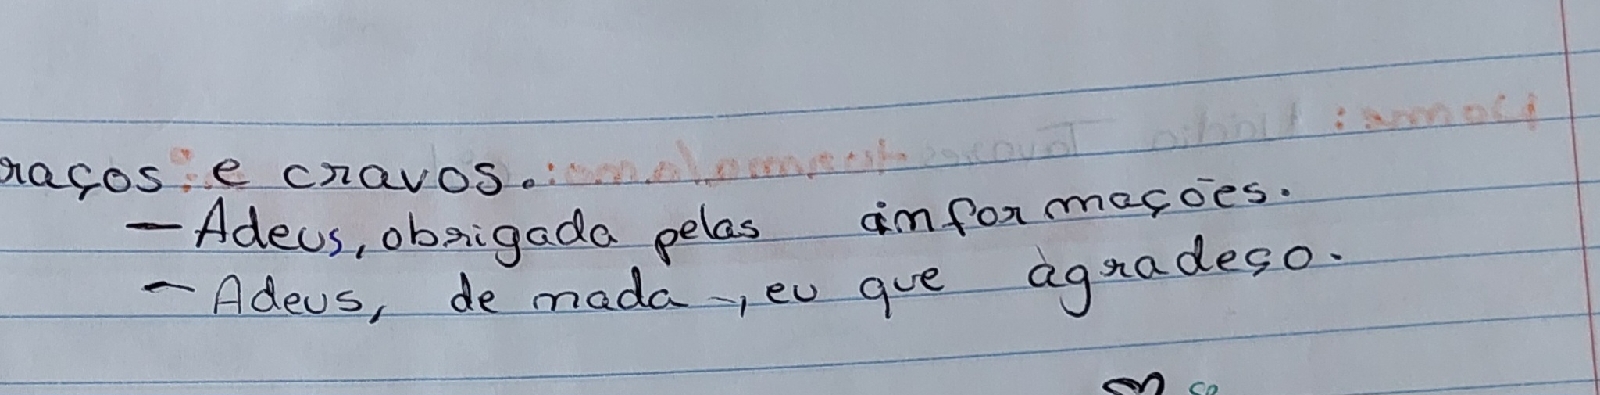 raços e cravos.
— Adeus, obrigada pelas informações.
— Adeus, de nada, eu que agradeço.